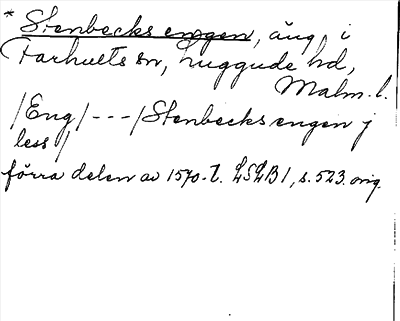 * Stenbecks engen, äng i
Farhults sn, Luggude hd,
Malm. l.
/Eng/ --- /Stenbecks engen j
less/
förra delen av 1570-t. LSLB 1, s. 523. orig.